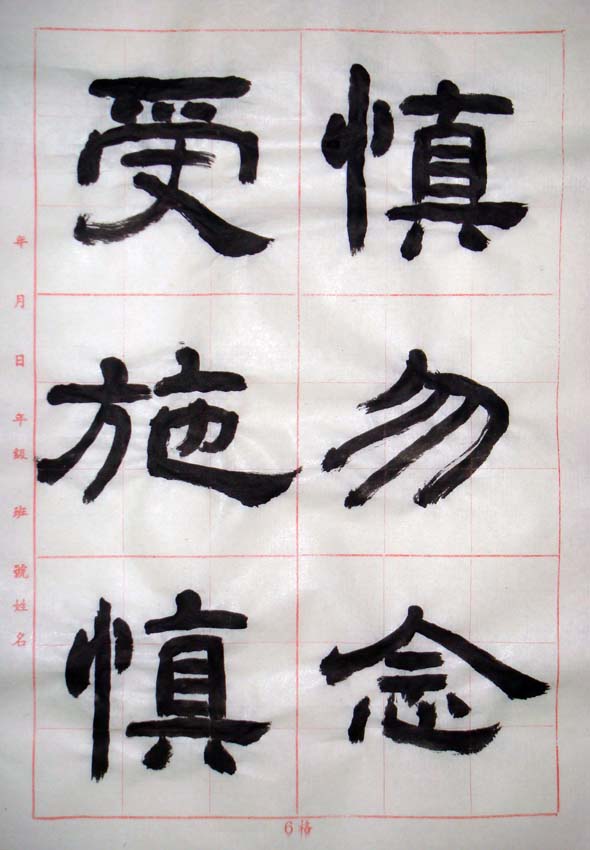 慎勿念
受施慎
年月日年級班號姓名
6格